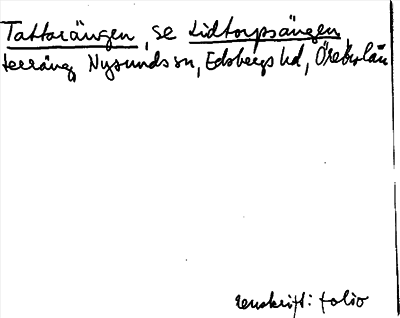 Tattarängen, se Lidtorpsängen,
terräng, Nysunds sn, Edsbergs hd, Örebro län
renskrift: folio